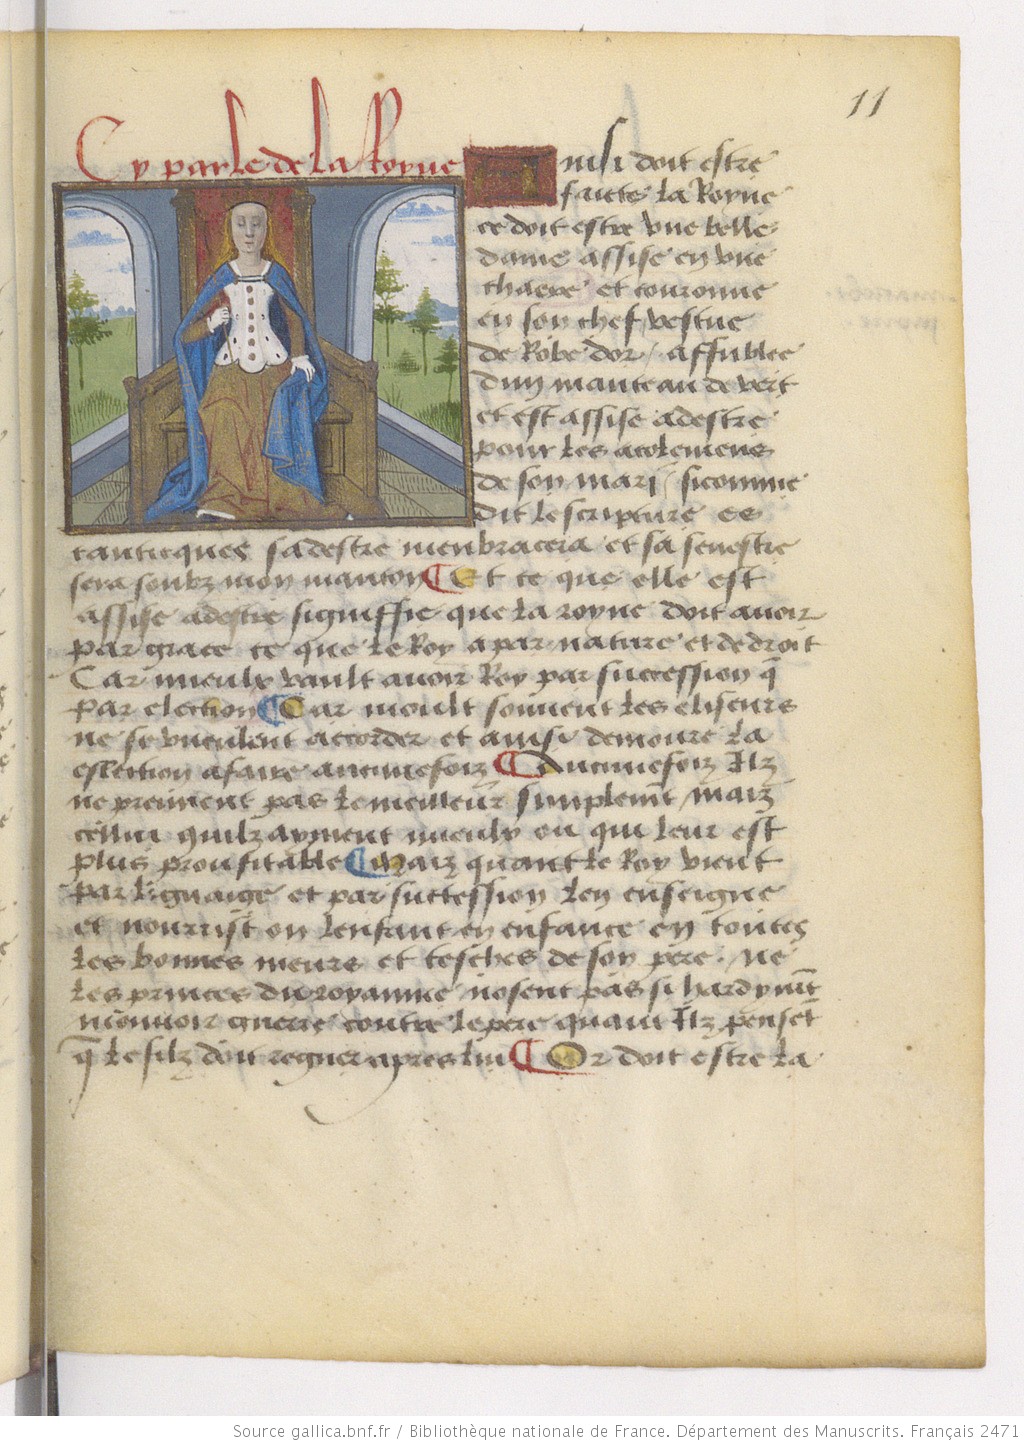 11
Cy parle de la Royne
Ainsi doit estre
faicte la Royne
ce doit estre vne belle
dame assise en vne
chaere et couronne
en son chef vestue
de Robe dor / affublee
dun manteau de vert
et est assise adestre
pour les acolemens
de son mari / sicomme
dit lescripture es
canticques sadestre menbracera et sa senestre
sera soubz mon manton Et ce que elle est
assise adestre signiffie que la royne doit auoir
par grace ce que le Roy a par nature et de droit
Car mieulx vault auoir Roy par succession q̄
par election Car moult souuent les eliseurs
ne se vueulent accorder et ainsi demoure la
eslection afaire aucuneffoiz Aucuneffoiz Ilz
ne prennent pas le meilleur simplemt̄ / maiz
cellui quilz ayment mieulx ou qui leur est
plus proufitable Maiz quant le Roy vient
par lignaige et par succession len enseigne
et nourrist on lenfant en enfance en toutes
les bonnes meurs et tesches de son pere . Ne
les princes du royaume nosent pas si hardymt̄
mouuoir guerre contre le pere quant Ilz pensēt
q̄ le filz doit regner apres lui Or doit estre la
Source gallica.bnf.fr / Bibliothèque nationale de France. Département des Manuscrits. Français 2471